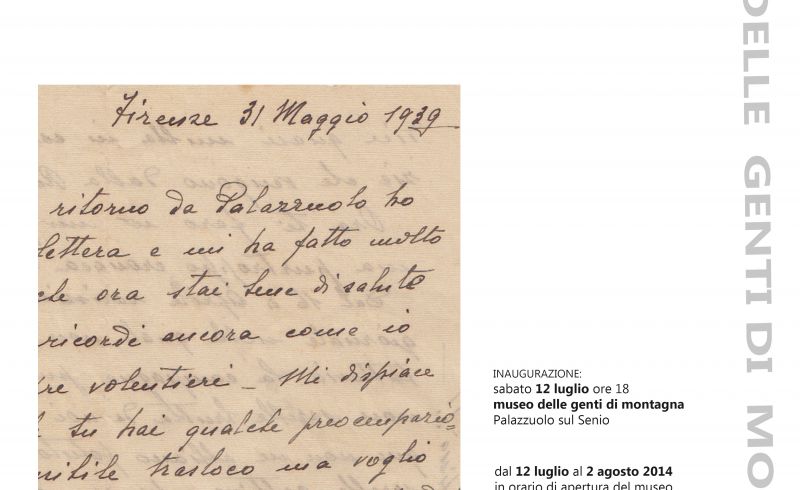 Firenze 31 Maggio 1939
ritorno da Palazzuolo ho
lettera e mi ha fatto molto
che ora stai bene di salute
ricordi ancora come io
re volentieri – Mi dispiace
tu hai qualche preoccupazio=
nibile trasloco ma voglio
INAUGURAZIONE:
sabato 12 luglio ore 18
museo delle genti di montagna
Palazzuolo sul Senio
dal 12 luglio al 2 agosto 2014
in orario di apertura del museo
DELLE GENTI DI MO